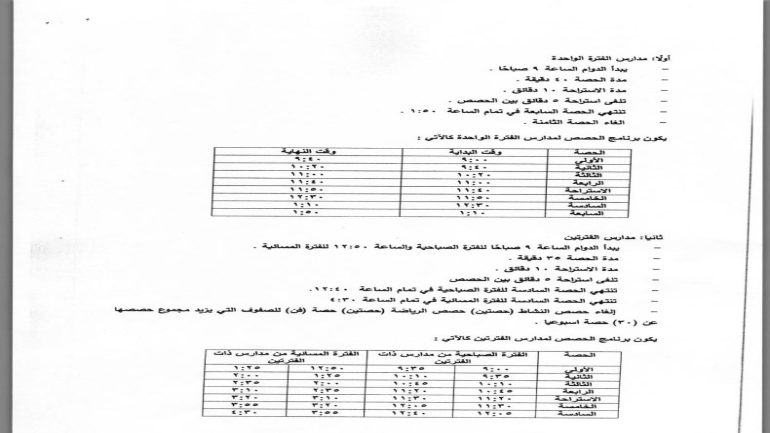 أولًا: مدارس الفترة الواحدة
– يبدأ الدوام الساعة ٩ صباحًا .
– مدة الحصة ٤٠ دقيقة .
– مدة الاستراحة ١٠ دقائق .
– تلغى استراحة ٥ دقائق بين الحصص .
– تنتهي الحصة السابعة في تمام الساعة ١:٥٠ .
– الغاء الحصة الثامنة .
يكون برنامج الحصص لمدارس الفترة الواحدة كالآتي :
الحصة وقت البداية وقت النهاية
الأولى ٩:٠٠ ٩:٤٠
الثانية ٩:٤٠ ١٠:٢٠
الثالثة ١٠:٢٠ ١١:٠٠
الرابعة ١١:٠٠ ١١:٤٠
الاستراحة ١١:٤٠ ١١:٥٠
الخامسة ١١:٥٠ ١٢:٣٠
السادسة ١٢:٣٠ ١:١٠
السابعة ١:١٠ ١:٥٠
ثانيا: مدارس الفترتين
– يبدأ الدوام الساعة ٩ صباحًا للفترة الصباحية والساعة ١٢:٥٠ للفترة المسائية .
– مدة الحصة ٣٥ دقيقة .
– مدة الاستراحة ١٠ دقائق .
– تلغى استراحة ٥ دقائق بين الحصص
– تنتهي الحصة السادسة للفترة الصباحية في تمام الساعة ١٢:٤٠.
– تنتهي الحصة السادسة للفترة المسائية في تمام الساعة ٤:٣٠
– إلغاء حصص النشاط (حصتين) حصص الرياضة (حصتين) حصة (فن) للصفوف التي يزيد مجموع حصصها
عن (٣٠) حصة اسبوعيا .
يكون برنامج الحصص لمدارس الفترتين كالآتي :
الحصة الفترة الصباحية من مدارس ذات الفترة المسائية من مدارس ذات
الفترتين الفترتين
الأولى ٩:٠٠ ٩:٣٥ ١٢:٥٠ ١:٢٥
الثانية ٩:٣٥ ١٠:١٠ ١:٢٥ ٢:٠٠
الثالثة ١٠:١٠ ١٠:٤٥ ٢:٠٠ ٢:٣٥
الرابعة ١٠:٤٥ ١١:٢٠ ٢:٣٥ ٣:١٠
الاستراحة ١١:٢٠ ١١:٣٠ ٣:١٠ ٣:٢٠
الخامسة ١١:٣٠ ١٢:٠٥ ٣:٢٠ ٣:٥٥
السادسة ١٢:٠٥ ١٢:٤٠ ٣:٥٥ ٤:٣٠